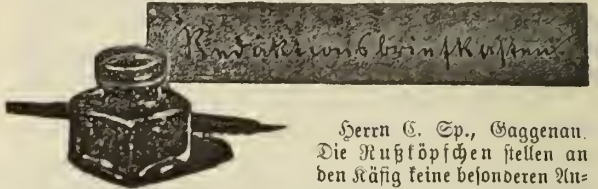 Redaktionsbriefkasten.
Herrn C. Sp., Gaggenau.
Die Rußköpfchen stellen an
den Käfig keine besonderen An-